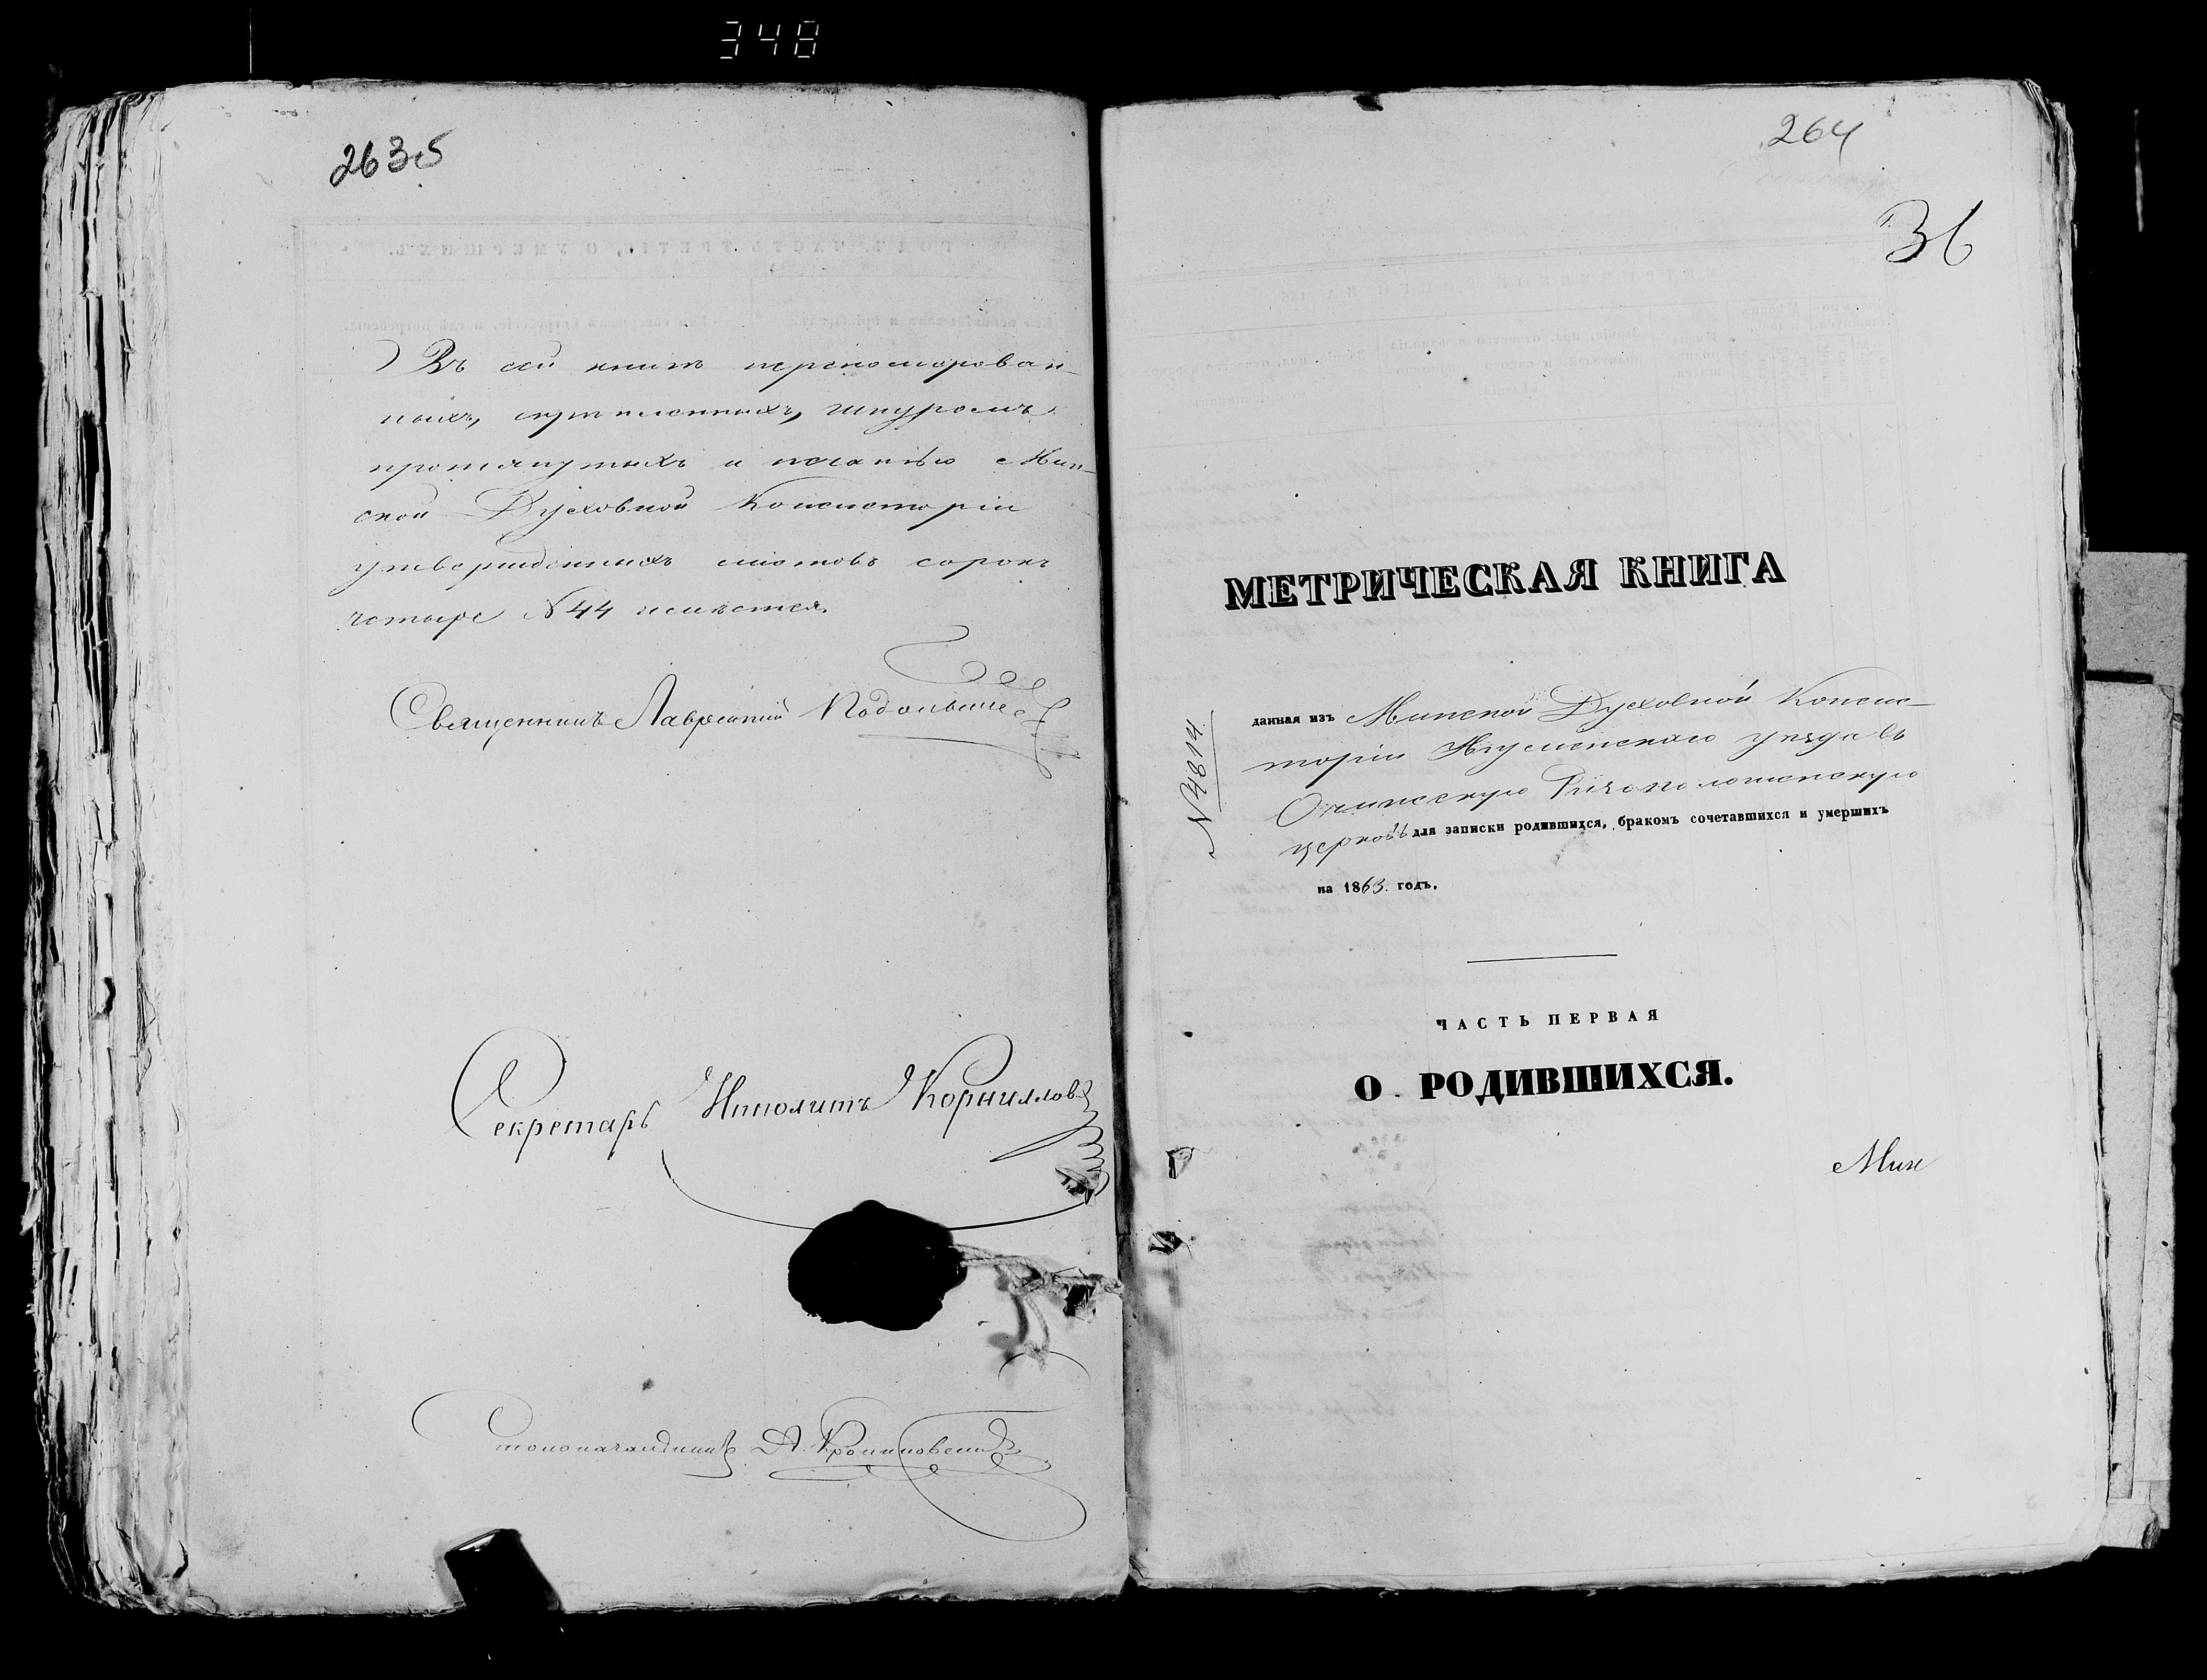 348
263.5
Въ сей книгѣ переномерован-
ныхъ, скрѣпленныхъ, шнуромъ
протянутыхъ и печатью Мин-
ской Духовной Консисторіи
утвержденныхъ листовъ сорокъ
четыре N 44 имѣется.
Священникъ Лаврентій
Секретарь Ипполитъ Корниллов
Столоначальникъ А.
264
36
МЕТРИЧЕСКАЯ КНИГА
N 4814
данная изъ Минской Духовной Консис-
торіи Игуменскаго уѣзда въ
Ризоположенскую
церковь для записки родившихся, бракомъ сочетавшихся и умершихъ
на 1863. годъ.
ЧАСТЬ ПЕРВАЯ
О РОДИВШИХСЯ.
Мин